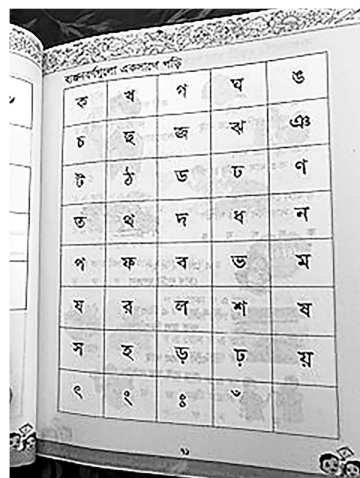 ব্যঞ্জনবর্ণগুলো একসাথে পড়ি
ক খ গ ঘ ঙ
চ ছ জ ঝ ঞ
ট ঠ ড ঢ ণ
ত থ দ ধ ন
প ফ ব ভ ম
য র ল শ ষ
স হ ড় ঢ় য়
ৎ ং ঃ ঁ